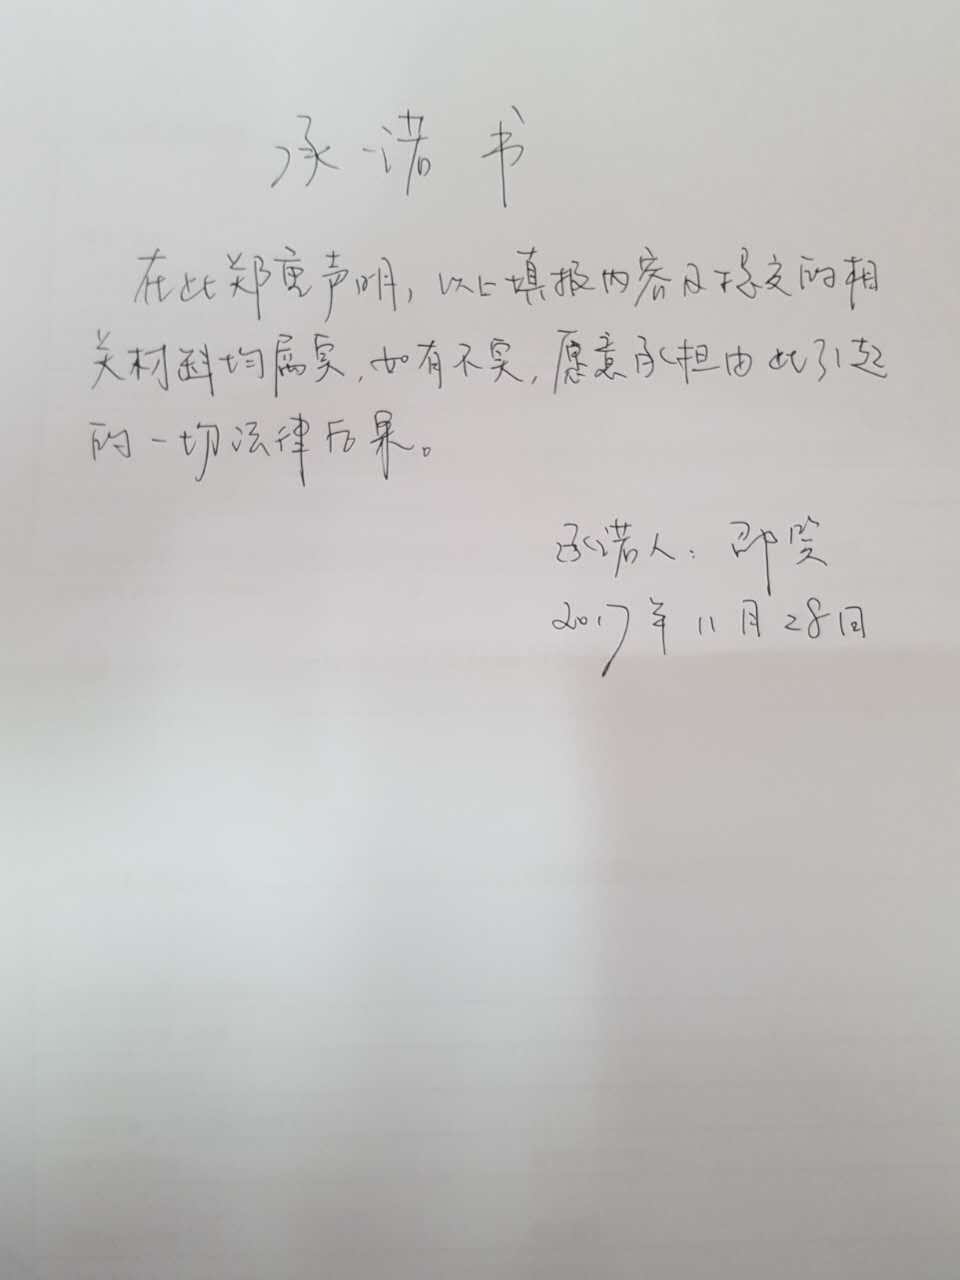 承诺书
在此郑重声明，以上填报内容及提交的相
关材料均属实，如有不实，愿意承担由此引起
的一切法律后果。
承诺人：邵笑
2017年11月28日